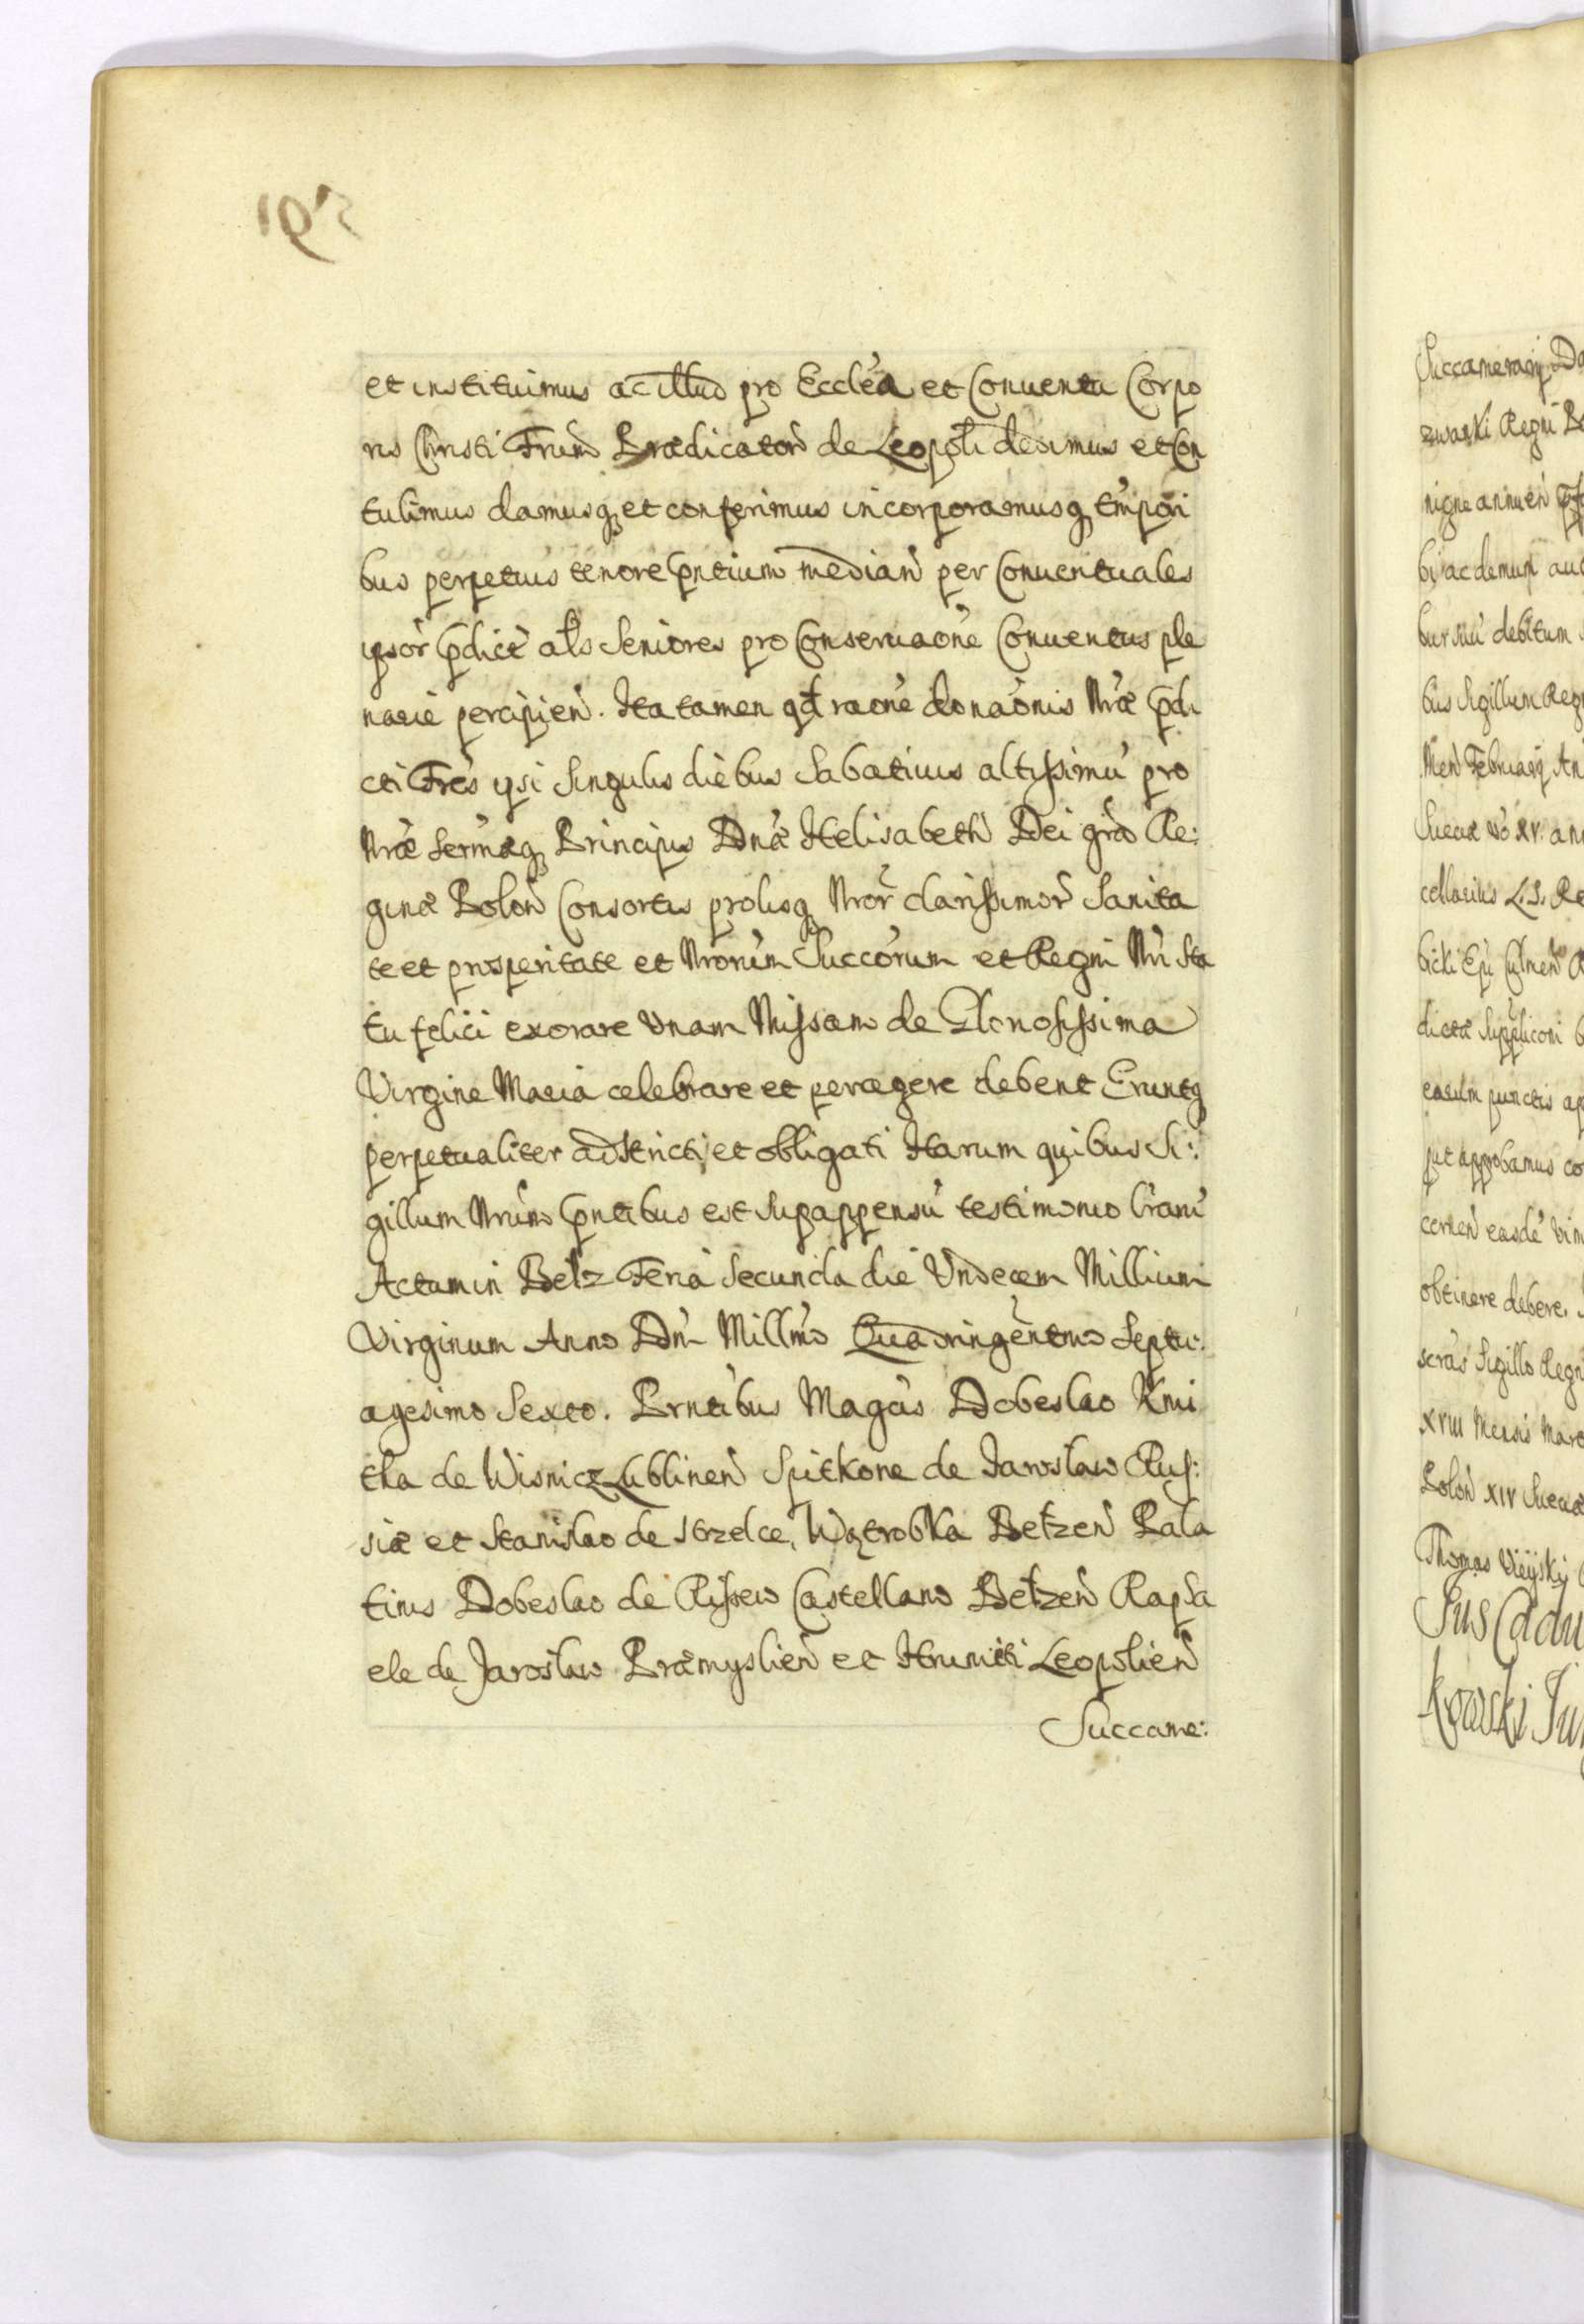 192
et instituimus ac illud pro Eccléa et Conuentu Corpo
ris Christi Frum Prædicator de Leopoli dedimus et Con
tulimus damusq et conferimus incorporamusq tempori
bus perpetuis tenore pntium median per Conuentuales
ipsor pdict als Seniores pro Conseruaone Conuentus ple
narie percipien. Ita tamen qd raone donaonis Nræ pdi
cti Fres ipsi Singulis diebus Sabativis altissimu pro
Nræ Sermæq Principis Dnæ Helisabeth Dei gra Re:
ginæ Polon Consortis prolisq Nror clarissimor Sanita
te et prosperitate et Nrorum Succorum et Regni Nri Sta
tu felici exorare Vnam Missam de Gloriosissima
Virgine Maria celebrare et peragere debent Eruntq
perpetualiter adstricti et obligati Harum quibus Si:
gillum Nrum pntibus est Supappensu testimonio lrarum
Actum in Belz Feria Secunda die Vndecem Millium
Virginum Anno Dni Millmo Quadringentmo Septu:
agesimo Sexto. Prntibus Magcis Dobeslao Kmi
tha de Wisnicz Lublinen Spitkone de Jaroslaw Rus:
siæ et Stanislao de Strzelce, Wątrobka Bełzen Pala
tinis Dobeslao de Rissew Castellano Bełzen Rapha
ele de Jaroslaw Præmyslien et Hrunitti Leopolien
Succame:
Succamerarijs
zwaski Regni
nigne annuen
bi ac demum
bur suu debitum
bus Sigillum
Men Februarij
Sueciæ vo XV.
cellarius L. S.
bicki Epi Culmen
dictæ Suppliconi
earum punctis
put approbamus
cernen easde
obtinere debere.
Sigillo
XVIII Mensis
Polon XIV Sueciæ
Thomas Vieyski